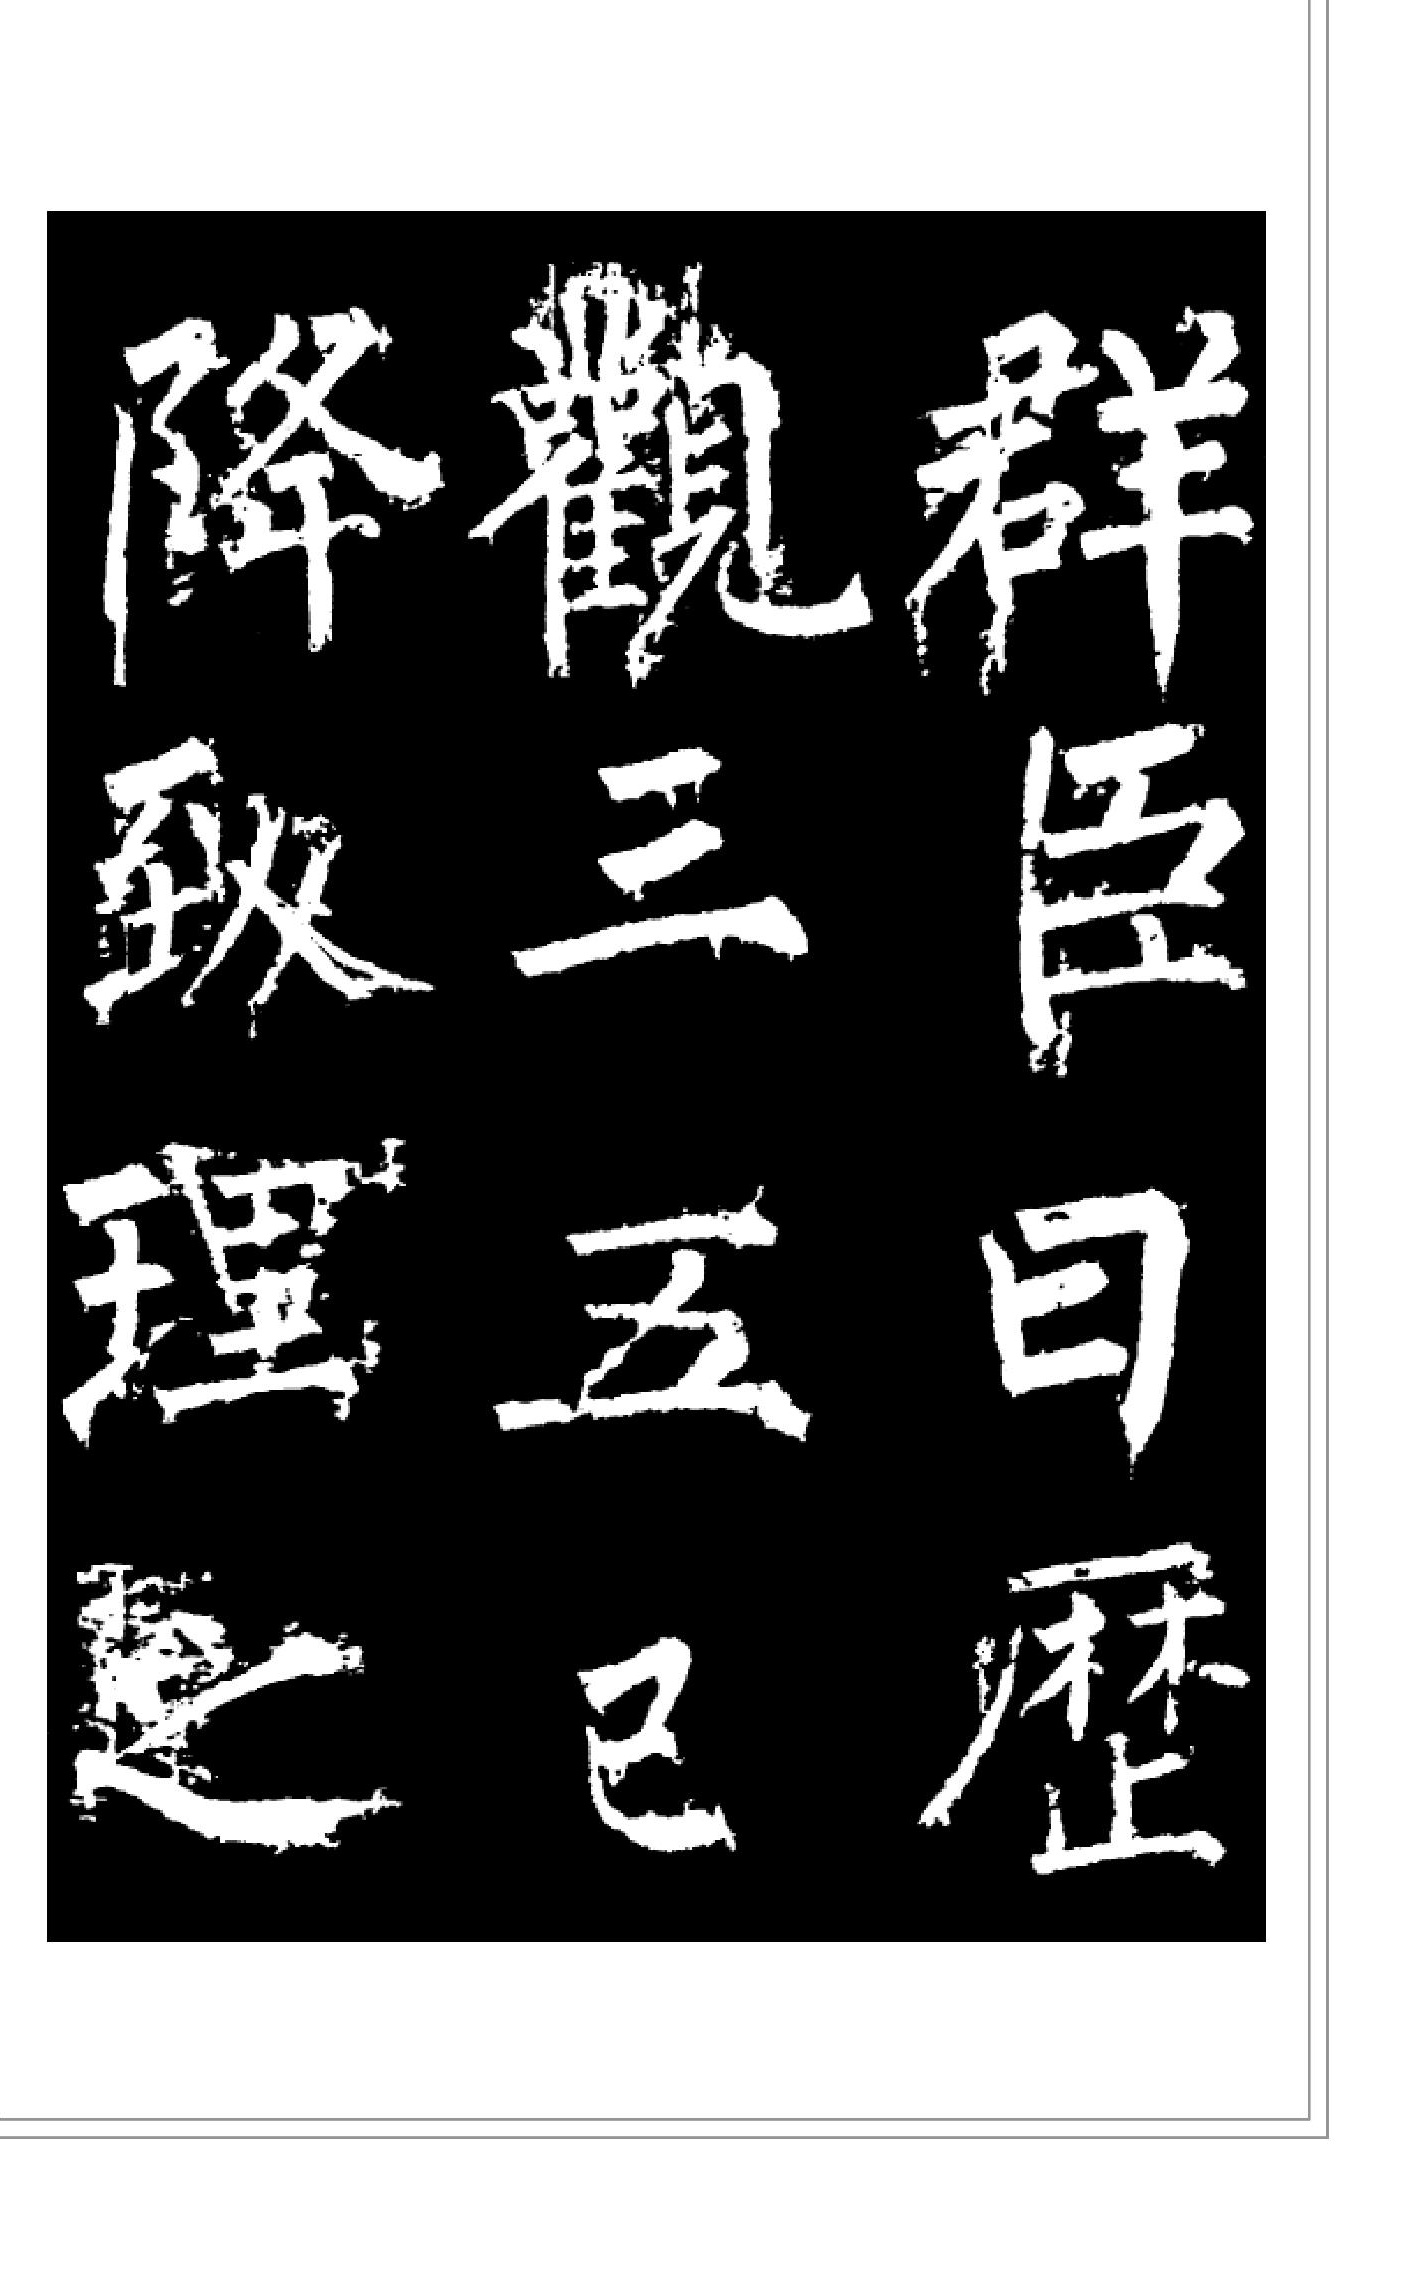 群臣曰歷
觀三五已
降致理之